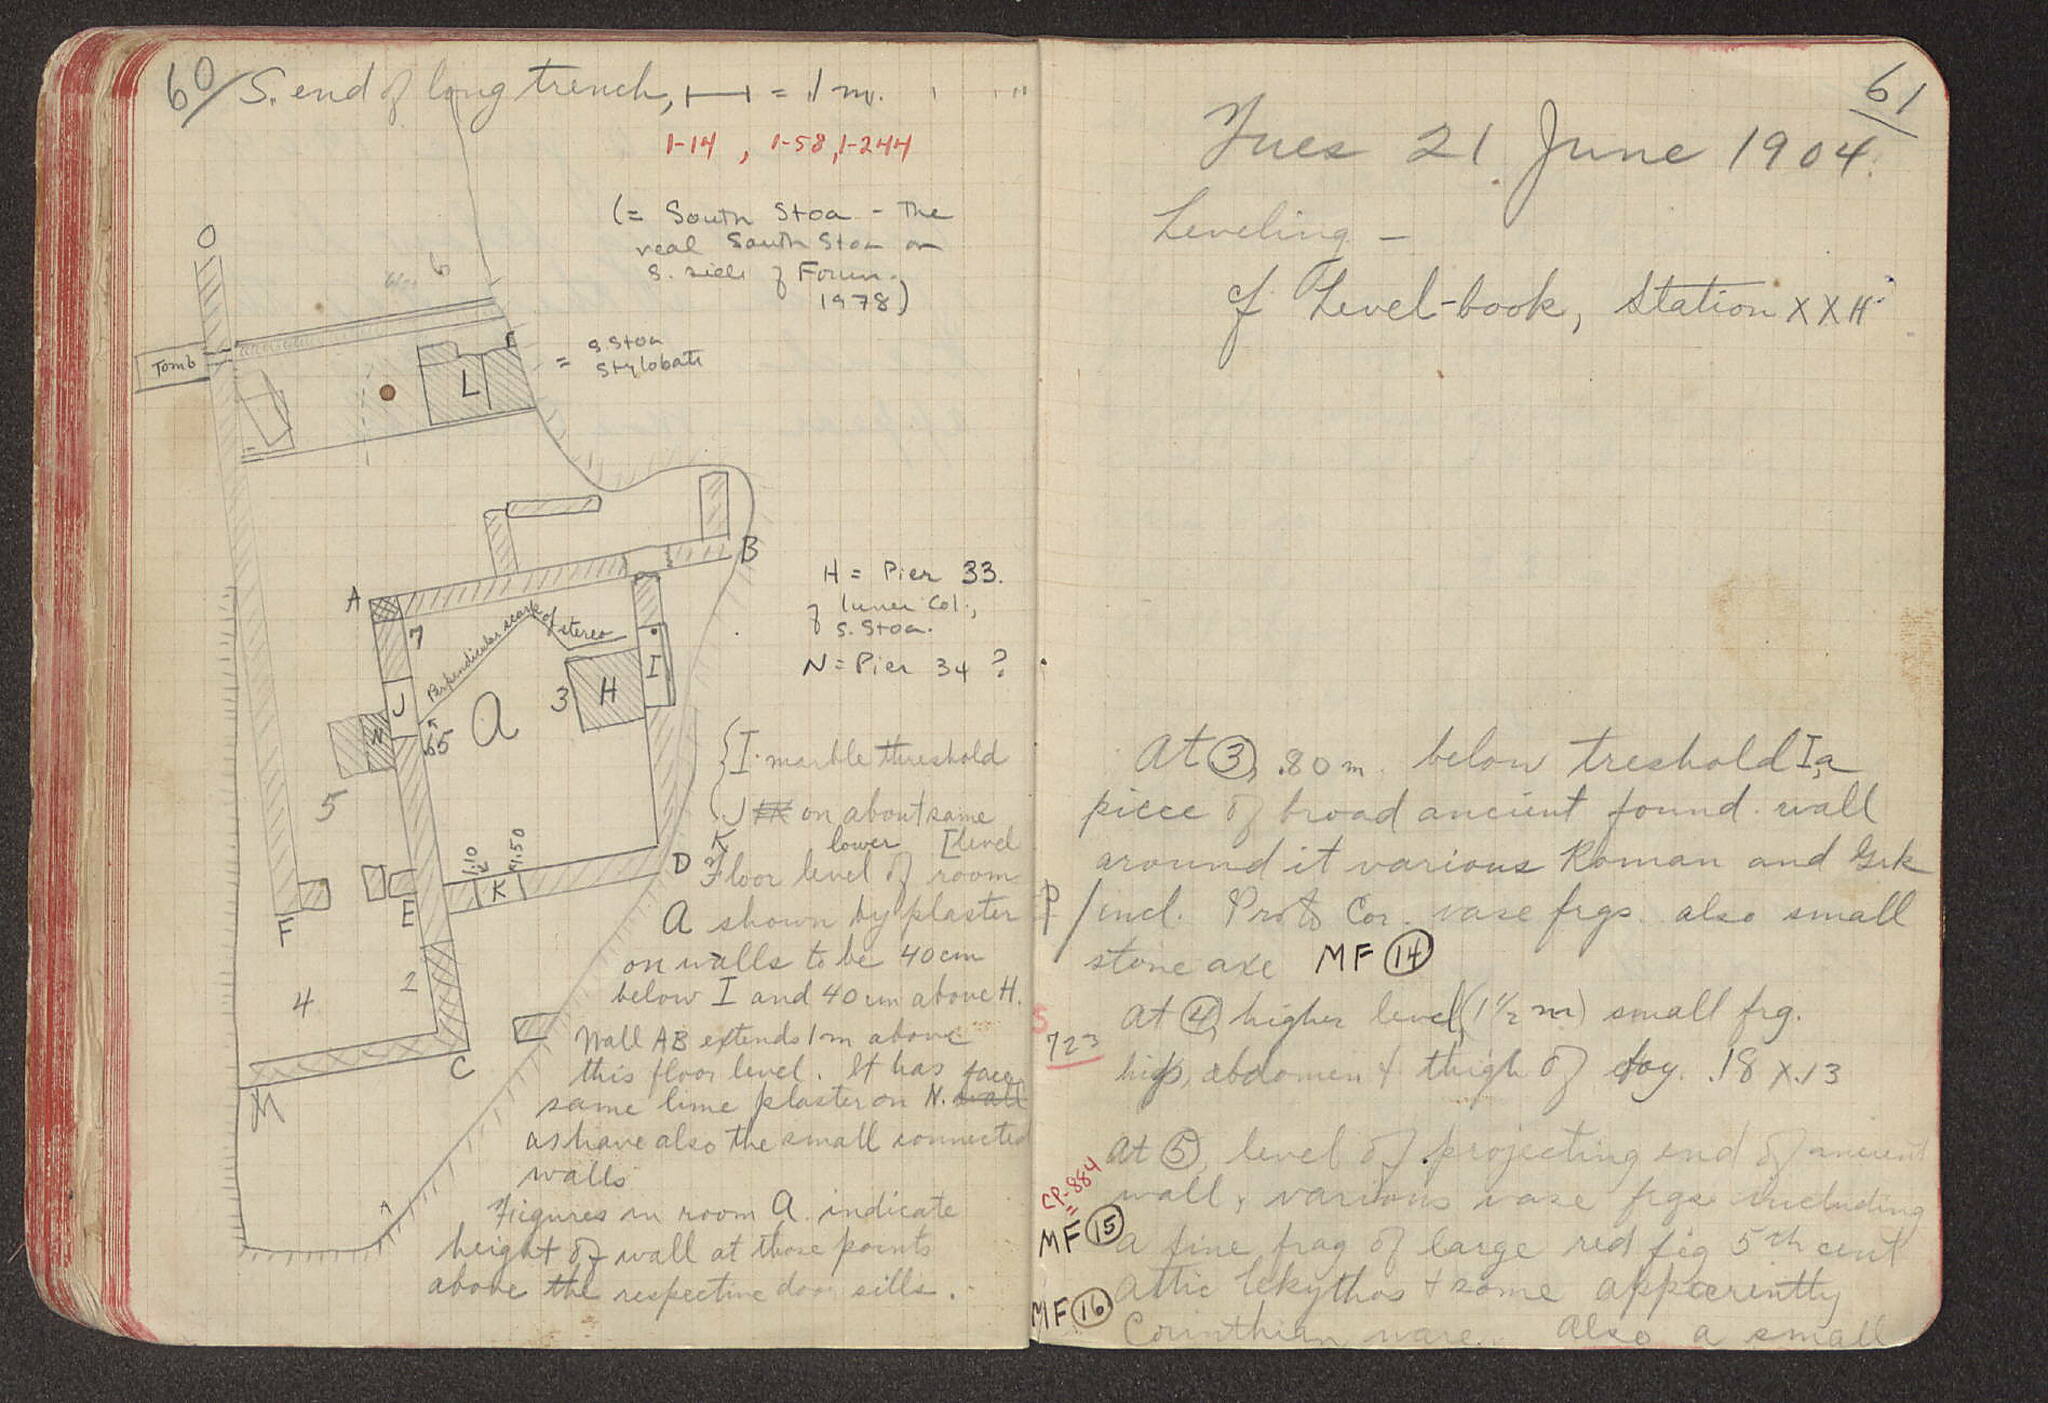 60/ S. end of long trench, = .1 m.
1-14, 1-58, 1-244
(= South Stoa - The
real South Stoa on
S. side of Forum.
1978)
6
Tomb
L
= S Stoa
Stylobate
A
B
7
Perpendicular scarp of stereo
J
I
3
H
N
65
A
5
H = Pier 33.
of Inner Col.,
S. Stoa.
N = Pier 34 ?
I. marble threshold
J on about same
K lower [level
1.10
1.50
K
D
E
F
2
4
C
M
Floor level of room
A shown by plaster
on walls to be 40 cm
below I and 40 cm above H.
Wall AB extends 1 m above
this floor level. It has
same lime plaster on N. wall face
as have also the small connected
walls
Figures in room A indicate
height of wall at those points
above the respective door sills.
61
Tues 21 June 1904.
Leveling -
cf Level-book, Station XXII
At ③, .80 m. below treshold I, a
piece of broad ancient found. wall
around it various Roman and Grk
P / incl. Proto Cor. vase frgs. also small
stone axe MF ⑭
At ④, higher level, (1 1/2 m) small frg.
S
723
hips, abdomen & thigh of boy. .18 x .13
At ⑤, level of projecting end of ancient
wall, various vase frgs including
CP-884
MF ⑮ a fine frag of large red fig 5th cent
Attic lekythos & some apparently
MF ⑯ Corinthian ware. Also a small